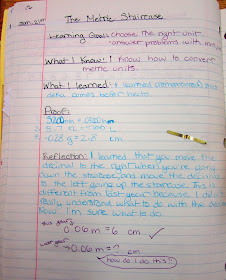 The Metric Staircase
Learning Goal: choose the right unit
answer problems with
What I Know: I know how to convert
metric units.
What I learned: I learned
deka comes before hecto.
Proof:
Reflection: I learned that you move the
decimal to the right when you're going
down the staircase and move the decimal
to the left going up the staircase. This is
different from last year because I didn't
really understand what to do with the
Now I'm sure what to do.
this year:
0.06m = 6 cm ✓
last year:
0.06m = ?
how do I do this?!